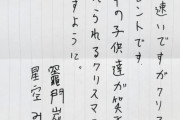 速いですがクリス
ントです。
中の子供達が笑
えられるクリスマス
すように。
竈門炭
星空み